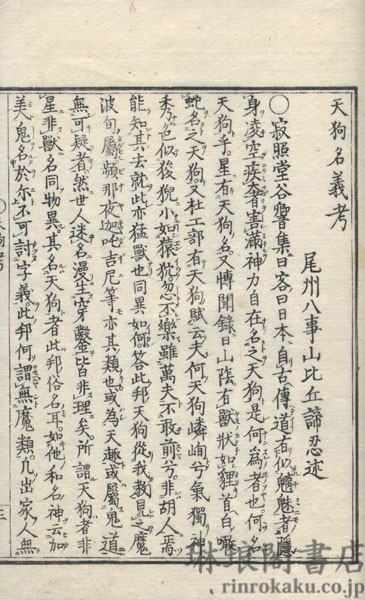 天狗名義考
尾州八事山比丘諦忍述
〇寂照堂谷響集曰客曰日本自古傳道有似魑魅者隱
身凌空疾奮害滿神力自在名之天狗是何爲者也何名
天狗乎星有天狗名又博聞錄曰山陰有獸狀如狸首白啾
蛇名之天狗又杜工部有天狗賦云夫何天狗嶙峋兮氣獨神
秀色似狻猊小如猿狖忽不樂雖萬夫不敢前兮非胡人焉
能知其去就此亦猛獸也同異如何答此邦天狗從我敎見之魔
波旬屬頻那夜迦吒吉尼等亦其類也或爲天趣或屬鬼道
無可疑者然世人迷名漫生穿鑿皆非理矣所謂天狗者非
星非獸名同物異其名天狗者此邦俗名耳如他和名神云加
美鬼名於尓不可討字義此邦何謂無魔類凢出家人無
三
琳琅閣書店
rinrokaku.co.jp